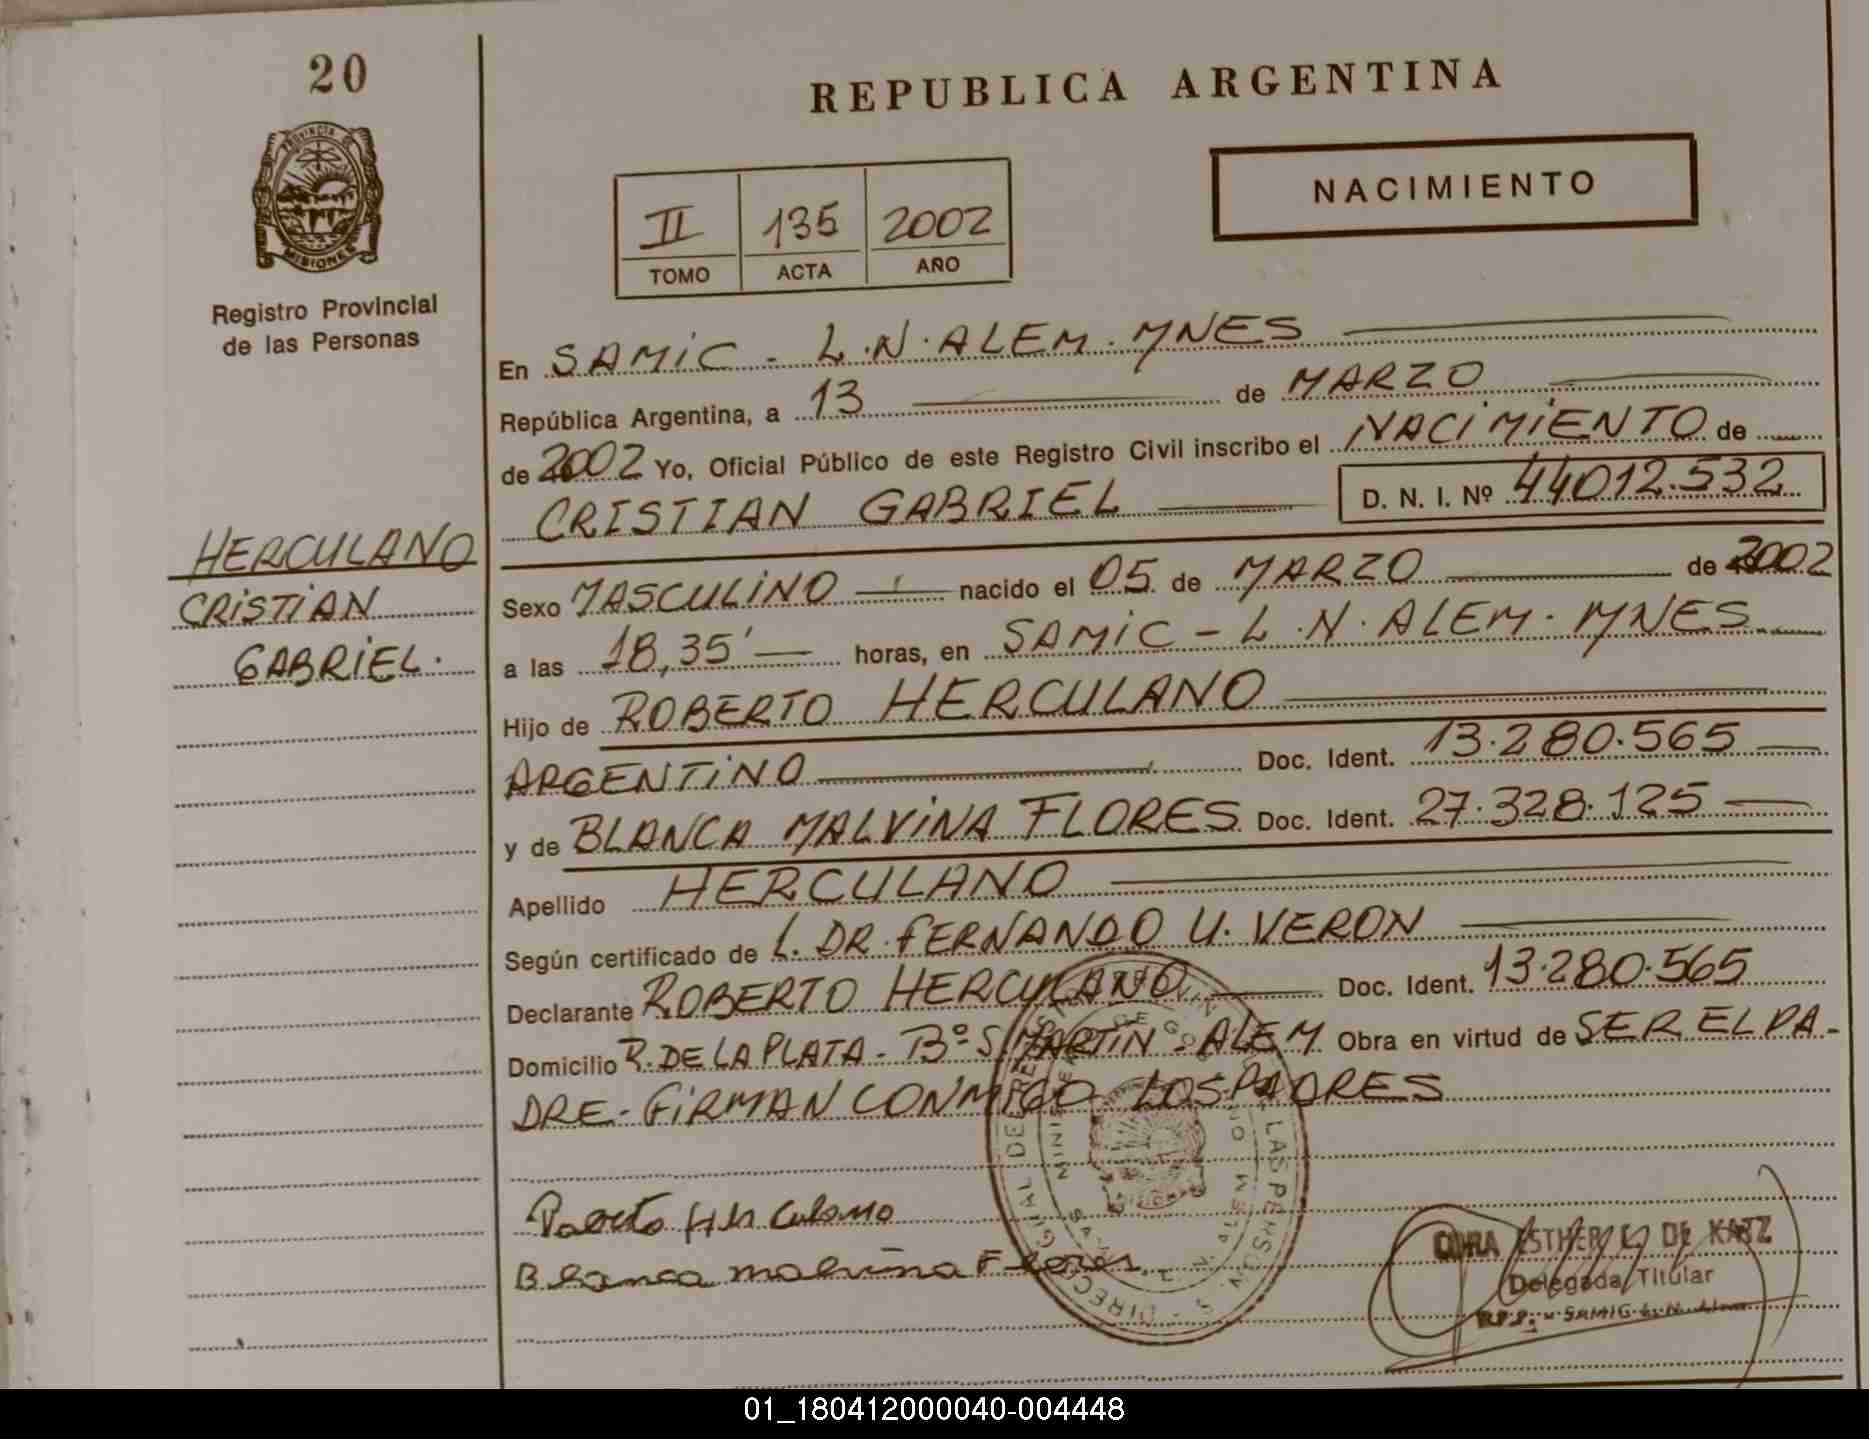 20
REPUBLICA ARGENTINA
PROVINCIA DE
MISIONES
NACIMIENTO
II 135 2002
TOMO ACTA AÑO
Registro Provincial
de las Personas
En SAMIC - L.N. ALEM. MNES
República Argentina, a 13 de MARZO
de 2002 Yo, Oficial Público de este Registro Civil inscribo el NACIMIENTO de
CRISTIAN GABRIEL D. N. I. Nº 44012.532
HERCULANO
CRISTIAN
GABRIEL.
Sexo MASCULINO nacido el 05 de MARZO de 2002
a las 18,35' horas, en SAMIC - L.N. ALEM. MNES
Hijo de ROBERTO HERCULANO
ARGENTINO Doc. Ident. 13.280.565
y de BLANCA MALVINA FLORES Doc. Ident. 27.328.125
Apellido HERCULANO
Según certificado de L. DR. FERNANDO U. VERON
Declarante ROBERTO HERCULANO Doc. Ident. 13.280.565
Domicilio R. DE LA PLATA - Bº S. MARTIN - ALEM Obra en virtud de SER EL PA-
DRE - FIRMAN CONMIGO LOS PADRES
Blanca malvina Flores
ESTHER DE KATZ
Delegada Titular
01_180412000040-004448